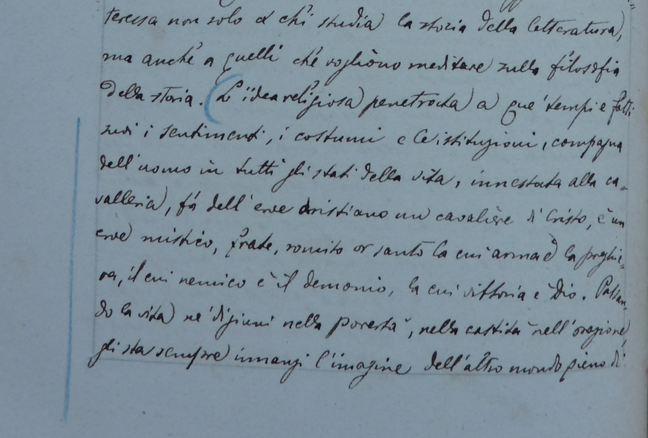 teressa non solo a chi studia la storia della letteratura,
ma anche a quelli che vogliono meditare sulla filosofia
della storia. L'idea religiosa penetrata a que' tempi e fatti
suoi i sentimenti, i costumi e le istituzioni, compagna
dell'uomo in tutti gli stati della vita, innestata alla ca-
valleria, fa dell'eroe cristiano un cavaliere di Cristo, è un
eroe mistico, frate, romito or santo la cui arma è la preghie-
ra, il cui nemico è il demonio, la cui vittoria è Dio. Passan-
do la vita ne' digiuni nella povertà, nella castità nell'orazione
gli sta sempre innanzi l'imagine dell'altro mondo pieno di